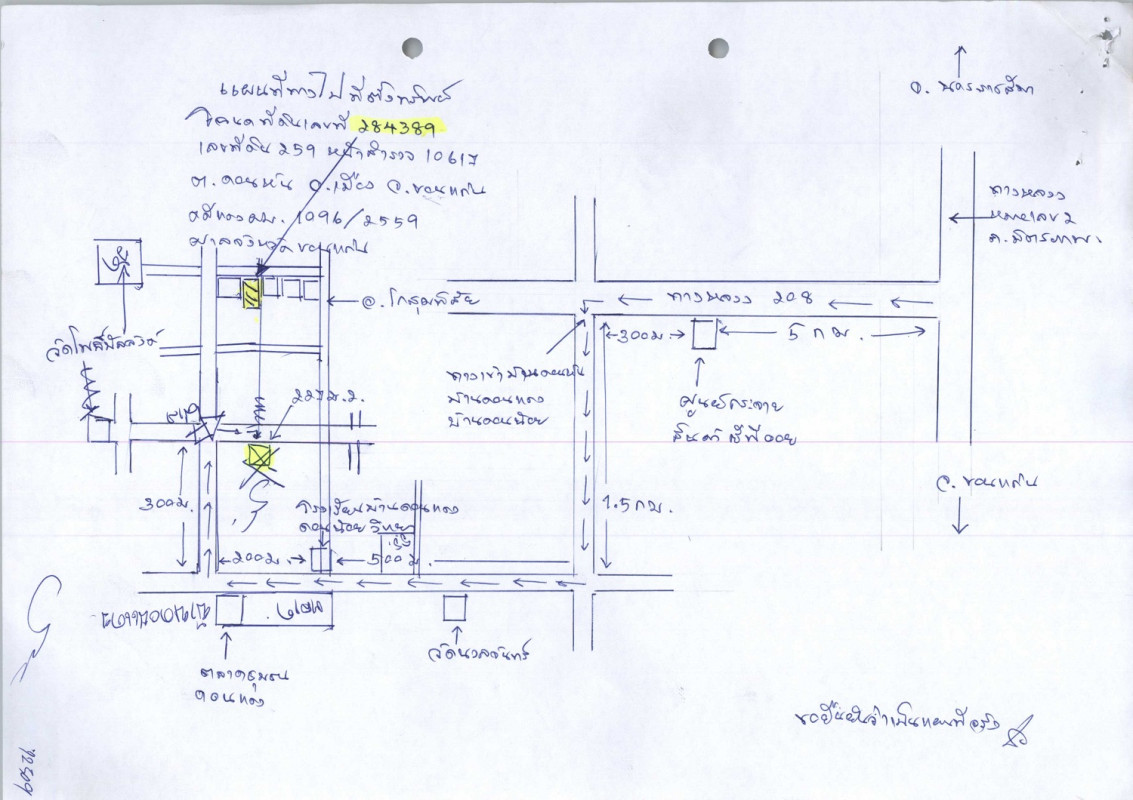 แผนที่ทางไปที่ตั้งทรัพย์
โฉนดที่ดินเลขที่ 284389
เลขที่ดิน 259 หน้าสำรวจ 10617
ต. ดอนหัน อ.เมือง จ.ขอนแก่น
1096/2559
ศาลจังหวัดขอนแก่น
จ. นครราชสีมา
ทางหลวง
หมายเลข 2
ถ.มิตรภาพ
จ. ขอนแก่น
ทางหลวง 208
300ม.
5 กม.
ศูนย์กระจาย
สินค้า ซีพีออล
ทางเข้าบ้านดอนหัน
บ้านดอนแดง
บ้านดอนน้อย
1.5 กม.
อ. โกสุมพิสัย
วัดโพธิ์บัลลังก์
300ม.
โรงเรียนบ้านดอนแดง
ดอนน้อยวิทยา
200ม.
500ม.
วัดนวลจันทร์
ตลาดชุมชน
ดอนแดง
ขอยืนยันว่าเป็นแผนที่จริง